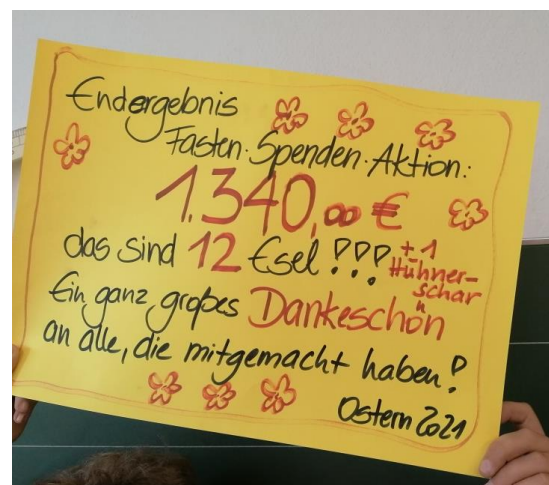 Endergebnis
Fasten-Spenden-Aktion:
1.340,00 €
das sind 12 Esel !!! + 1
Hühner-
schar
Ein ganz großes Dankeschön
an alle, die mitgemacht haben!
Ostern 2021